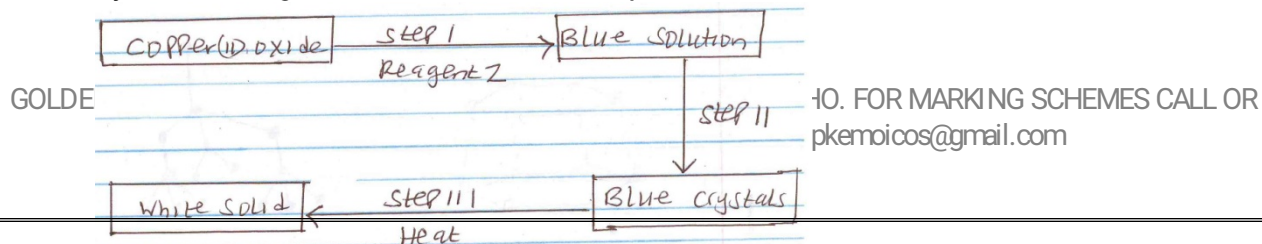 Copper(II) oxide
Step I
Reagent Z
Blue solution
GOLDE
HO. FOR MARKING SCHEMES CALL OR
Step II
pkemoicos@gmail.com
White solid
Step III
Heat
Blue crystals